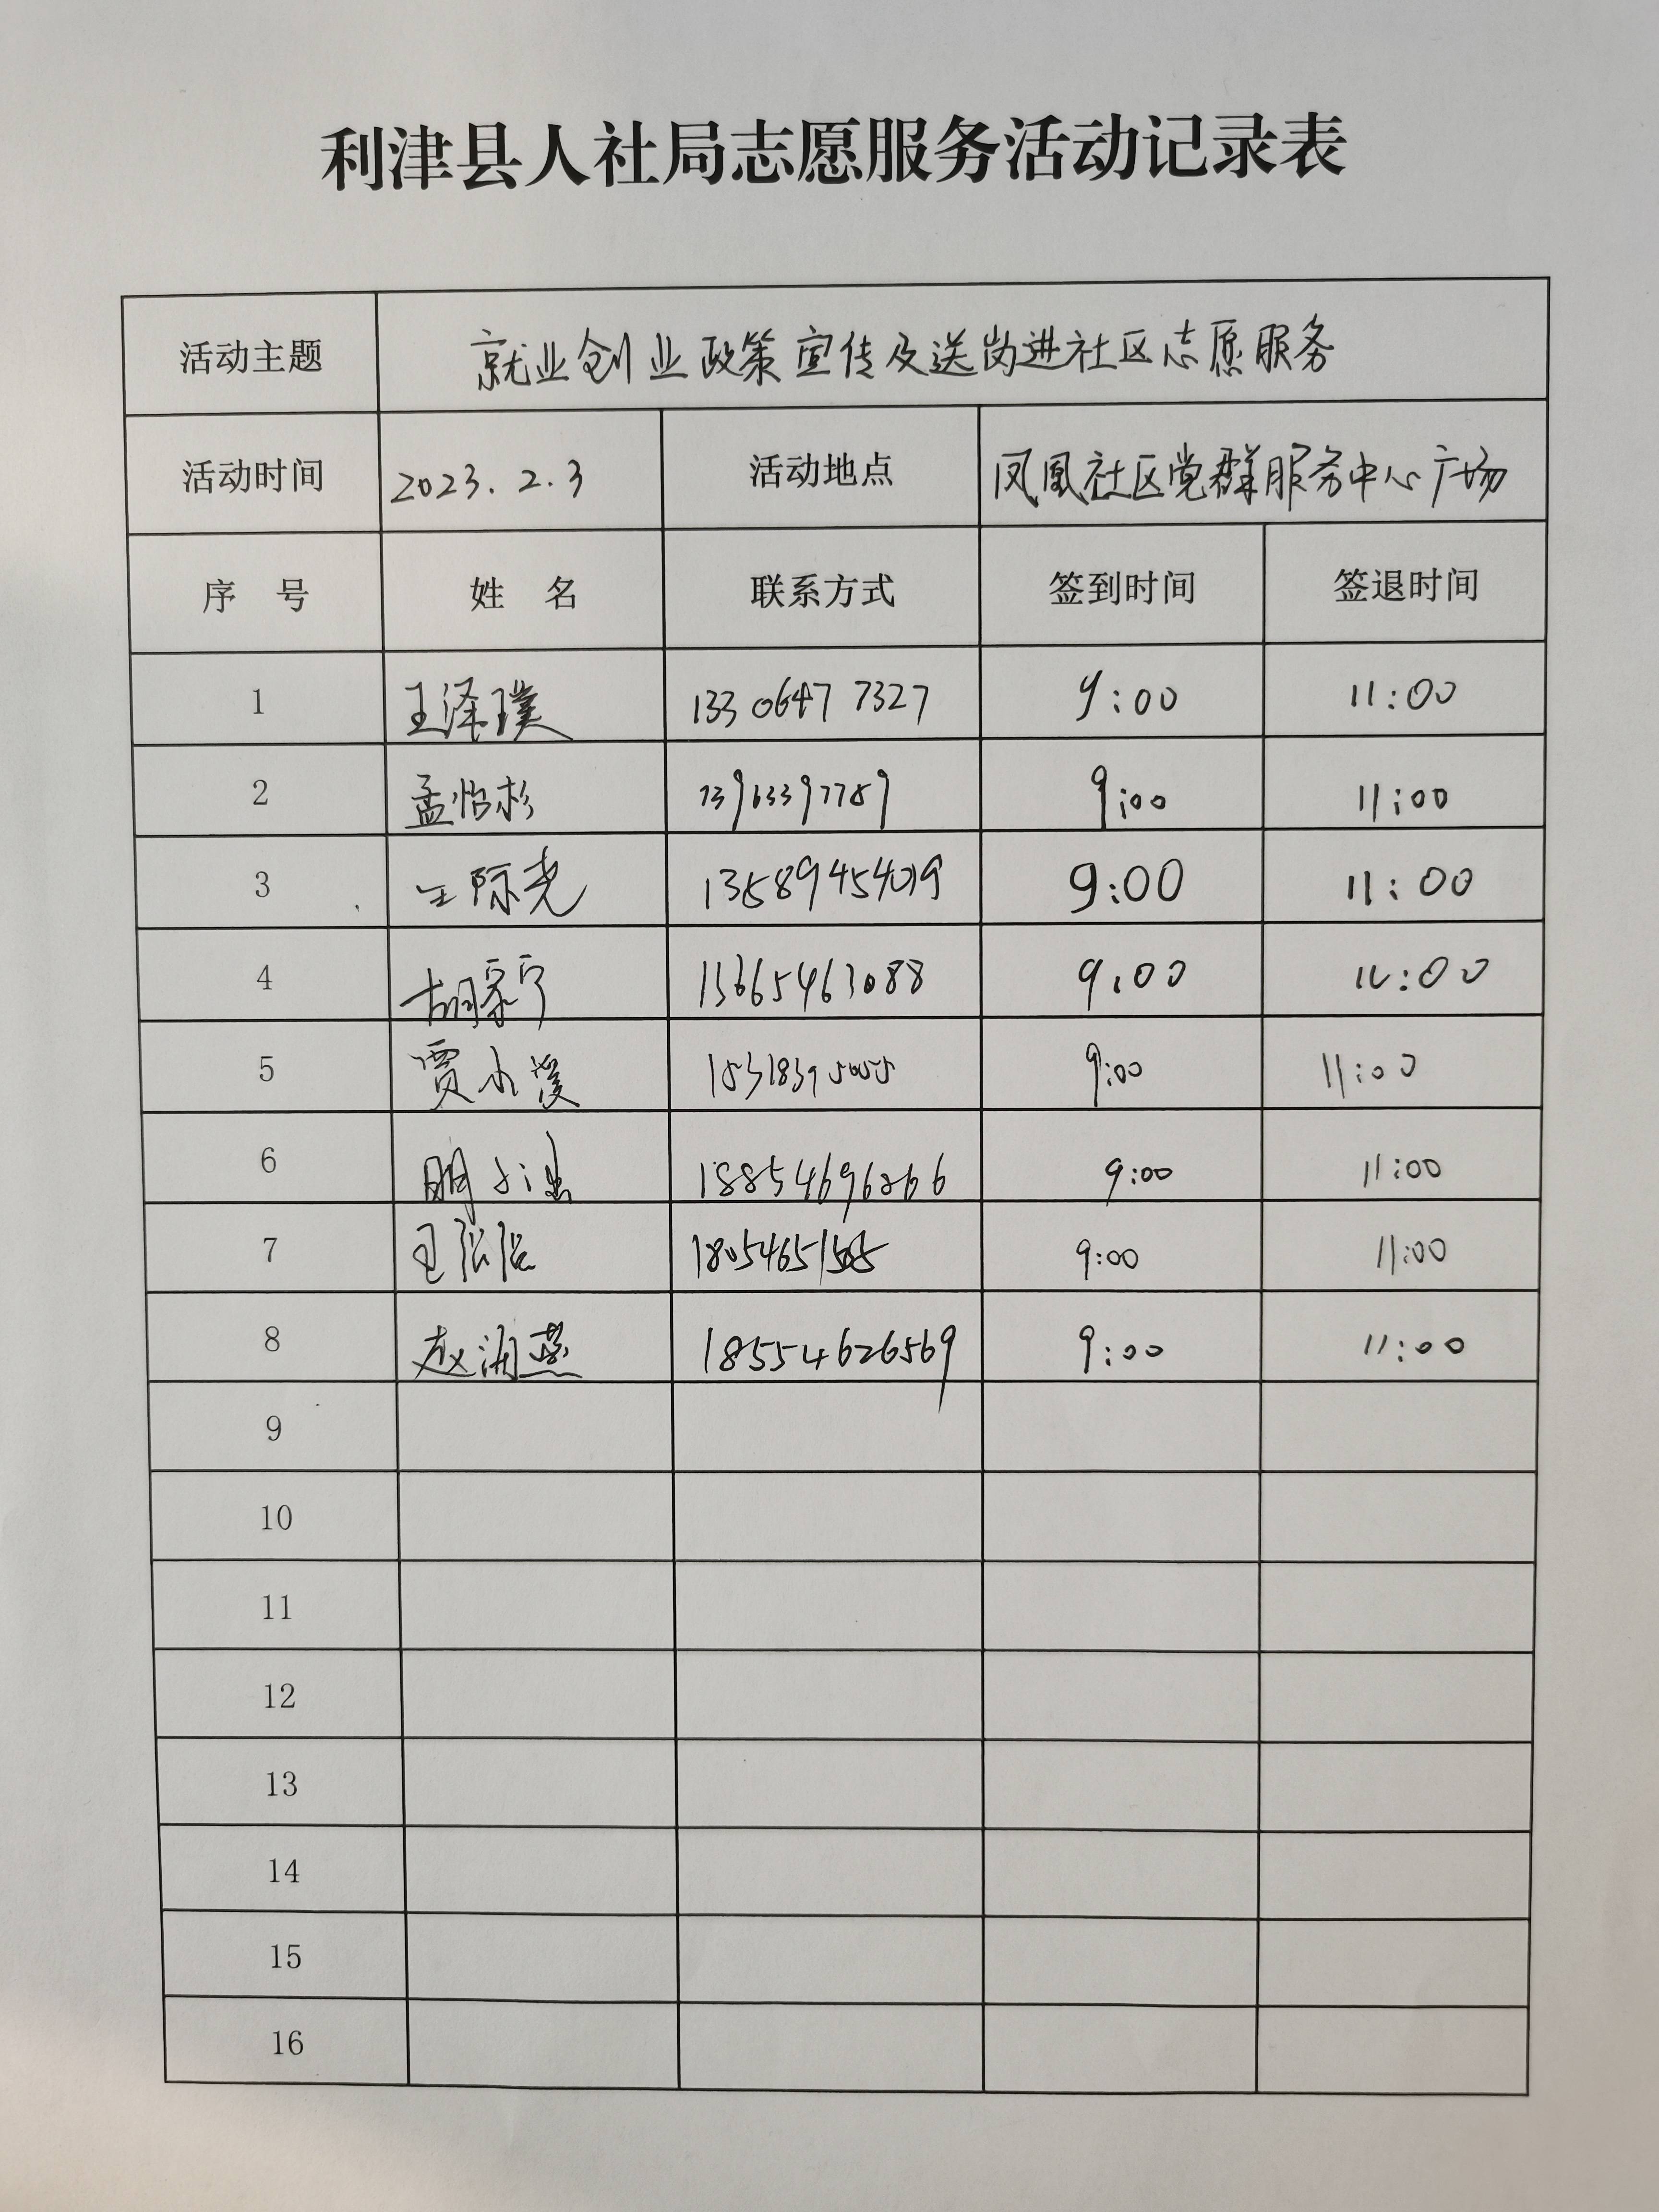 利津县人社局志愿服务活动记录表
活动主题 就业创业政策宣传及送岗进社区志愿服务
活动时间 2023.2.3 活动地点 凤凰社区党群服务中心广场
序 号 姓 名 联系方式 签到时间 签退时间
1 王泽璞 13306477327 9:00 11:00
2 孟怡杉 13963397789 9:00 11:00
3 王际尧 13589454019 9:00 11:00
4 胡家宁 9:00 11:00
5 贾小溪 9:00 11:00
6 18854696266 9:00 11:00
7 9:00 11:00
8 赵海燕 18554626569 9:00 11:00
9
10
11
12
13
14
15
16